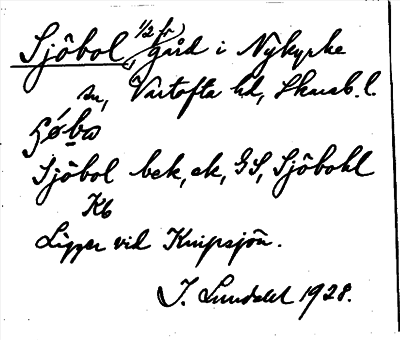 Sjöbol, 1/2 fr gård i Nykyrke
sn, Vartofta hd, Skarab. l.
Sjöbol bek, ek, GS, Sjöbohl
Kb
Ligger vid Knipsjön.
J. Lundahl 1928.